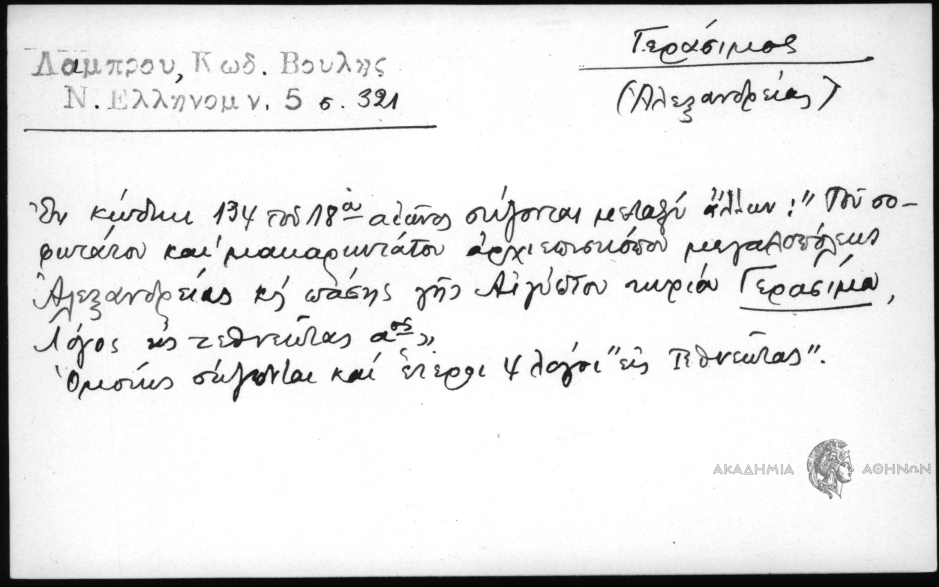 Λαμπρου, Κωδ. Βουλης
Ν. Ελληνομν. 5 σ. 321
Γεράσιμος
(Ἀλεξανδρείας)
Ἐν κώδικι 134 τοῦ 18ου αἰῶνος σώζονται μεταξὺ ἄλλων: "Τοῦ σο-
φωτάτου καὶ μακαριωτάτου ἀρχιεπισκόπου μεγαλοπόλεως
Ἀλεξανδρείας κ̀ πάσης γῆς Αἰγύπτου κυρίου Γερασίμου,
Λόγος εἰς τεθνεῶτας αος»
Ὁμοίως σώζονται καὶ ἕτεροι 4 λόγοι "εἰς Τεθνεῶτας".
ΑΚΑΔΗΜΙΑ ΑΘΗΝΩΝ